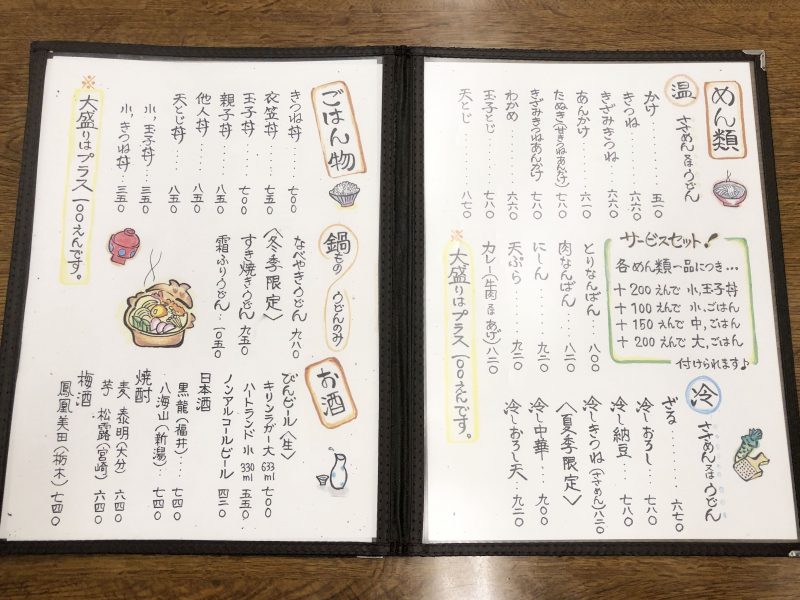 めん類
温 ささめん又はうどん
かけ……五一〇
きつね……六六〇
きざみきつね…六六〇
あんかけ……六一〇
きざみきつねあんかけ 七八〇
わかめ……六六〇
玉子とじ……七八〇
天とじ……八七〇
サービスセット!
各めん類一品につき…
+200えんで 小,玉子丼
+100えんで 小,ごはん
+150えんで 中,ごはん
+200えんで 大,ごはん
付けられます♪
とりなんばん…八〇〇
肉なんばん…八二〇
にしん……九二〇
天ぷら……九二〇
カレー(牛肉又はあげ) 八二〇
※大盛りはプラス一〇〇えんです。
冷 ささめん又はうどん
ざる……六七〇
冷しおろし…七八〇
冷し納豆…七八〇
冷しきつね(ささめん)八二〇
〈夏季限定〉
冷し中華…九〇〇
冷しおろし天…九二〇
ごはん物
きつね丼……七〇〇
衣笠丼……七五〇
玉子丼……七〇〇
親子丼……八五〇
他人丼……八五〇
天とじ丼……八五〇
小,玉子丼……三五〇
小,きつね丼…三五〇
※大盛りはプラス一〇〇えんです。
鍋もの うどんのみ
なべやきうどん 九八〇
〈冬季限定〉
すき焼きうどん 九五〇
霜ふりうどん…一〇五〇
お酒
びんビール〈生〉
キリンラガー大 633ml 七〇〇
ハートランド小 330ml 五五〇
ノンアルコールビール 四二〇
日本酒
黒龍(福井)…七四〇
八海山(新潟)…七四〇
焼酎
麦 泰明(大分) 六四〇
芋 松露(宮崎) 六四〇
梅酒
鳳凰美田(栃木) 七四〇